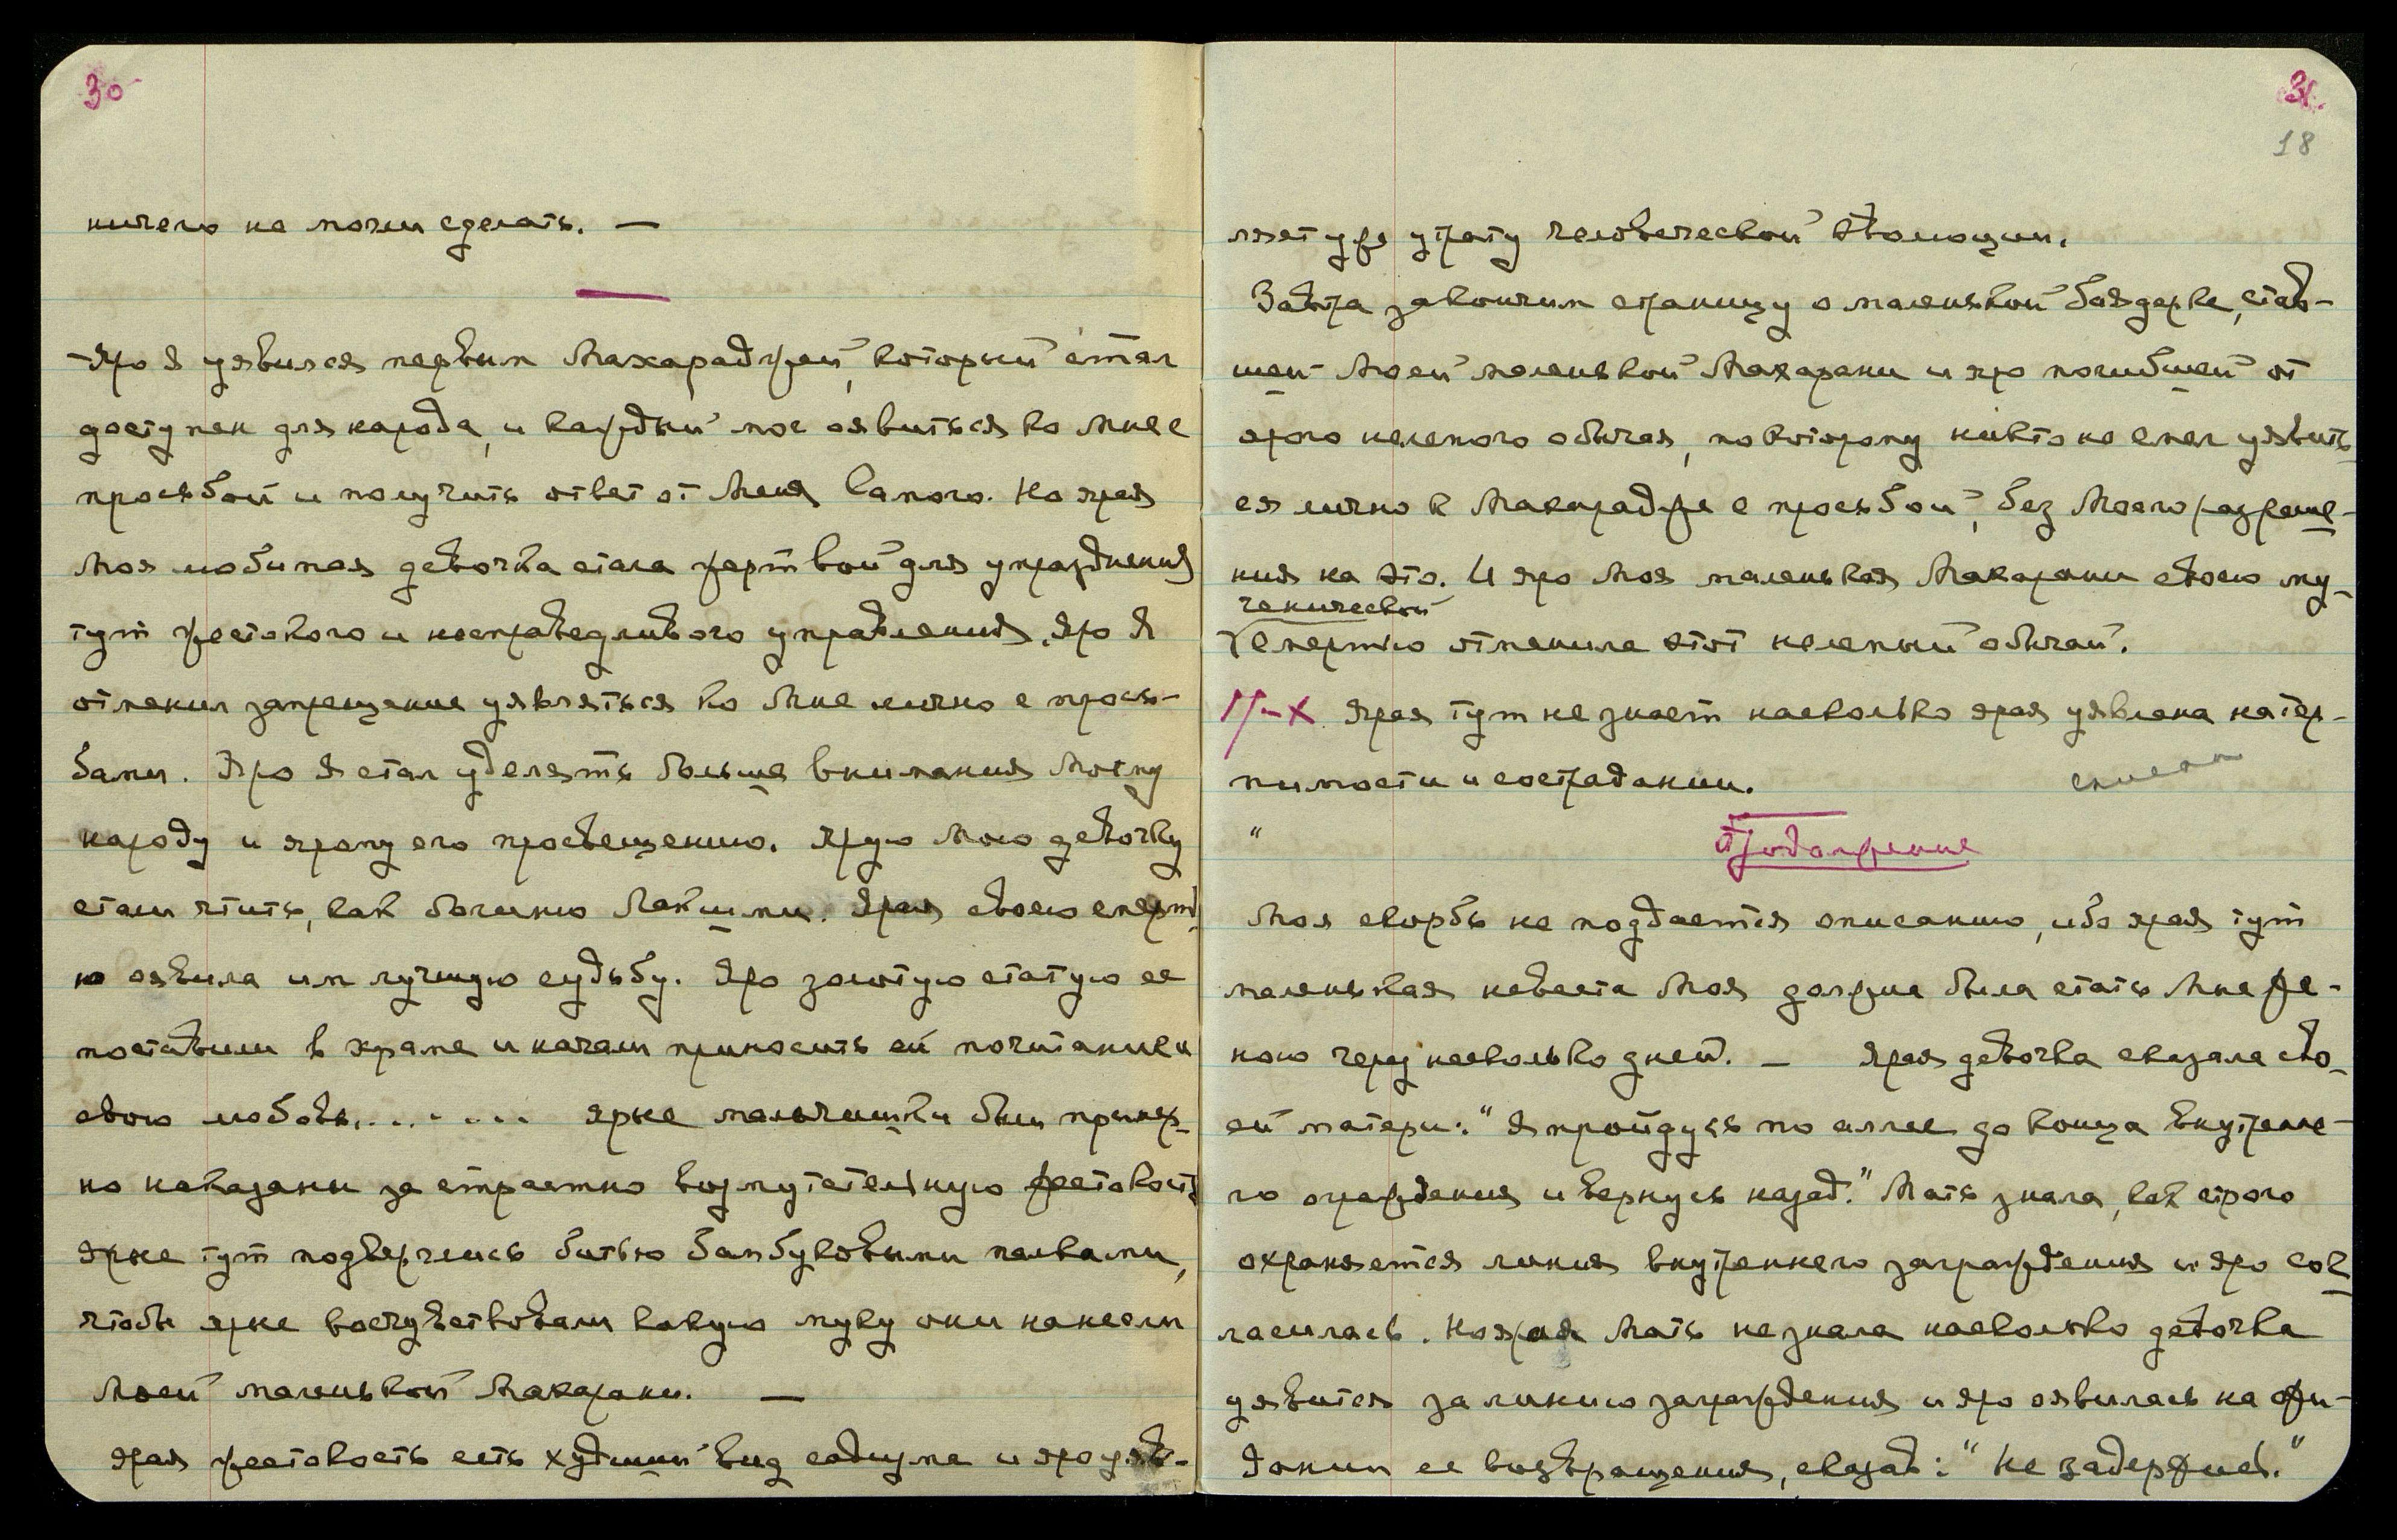 30
ничего не могли сделать. —
Яро Я уявился первым Махараджей, который стал
доступен для народа, и каждый мог оявиться ко Мне с
просьбой и получить ответ от Меня Самого. Но ярая
Моя любимая девочка стала жертвой для упразднения
тут жестокого и несправедливого управления. Яро Я
отменил запрещение уявляться ко Мне лично с прось-
бами. Яро Я стал уделять больше внимания Моему
народу и ярому его просвещению. Ярую Мою девочку
стали чтить, как богиню Лакшми. Ярая своею смерть
ю оявила им лучшую судьбу. Яро золотую статую ее
поставили в храме и начали приносить ей почитание и
свою любовь........ Ярые мальчишки были пример-
но наказаны за страстно возмутительную жестокость
Ярые тут подверглись битью бамбуковыми палками,
чтобы ярые восчувствовали какую муку они нанесли
Моей маленькой Махарани. —
Ярая жестокость есть худший вид садизма и яро уяв-
31.
18
ляет уже утрату человеческой эволюции.
Завтра закончим страницу о маленькой баядерке, став-
шей Моей маленькой Махарани и яро погибшей от
ярого нелепого обычая, по которому никто не смел уявить
ся лично к Махарадже с просьбой, без Моего разреше-
ния на это. И яро Моя маленькая Махарани своею му-
ченической
смертью отменила этот нелепый обычай.
Ур-х. Ярая тут не знает насколько ярая уявлена на тер-
пимости и сострадании.
списан
"
Продолжение
Моя скорбь не поддается описанию, ибо ярая тут
маленькая невеста Моя должна была стать Мне же-
ною через несколько дней. — Ярая девочка сказала сво-
ей матери: "Я пройдусь по аллее до конца внутренне-
го ограждения и вернусь назад." Мать знала, как строго
охраняется линия внутреннего заграждения и яро сог
ласилась. Но ярая Мать не знала насколько девочка
уявится за линию заграждения и яро оявилась на ожи-
дании ее возвращения, сказав: "Не задержись."